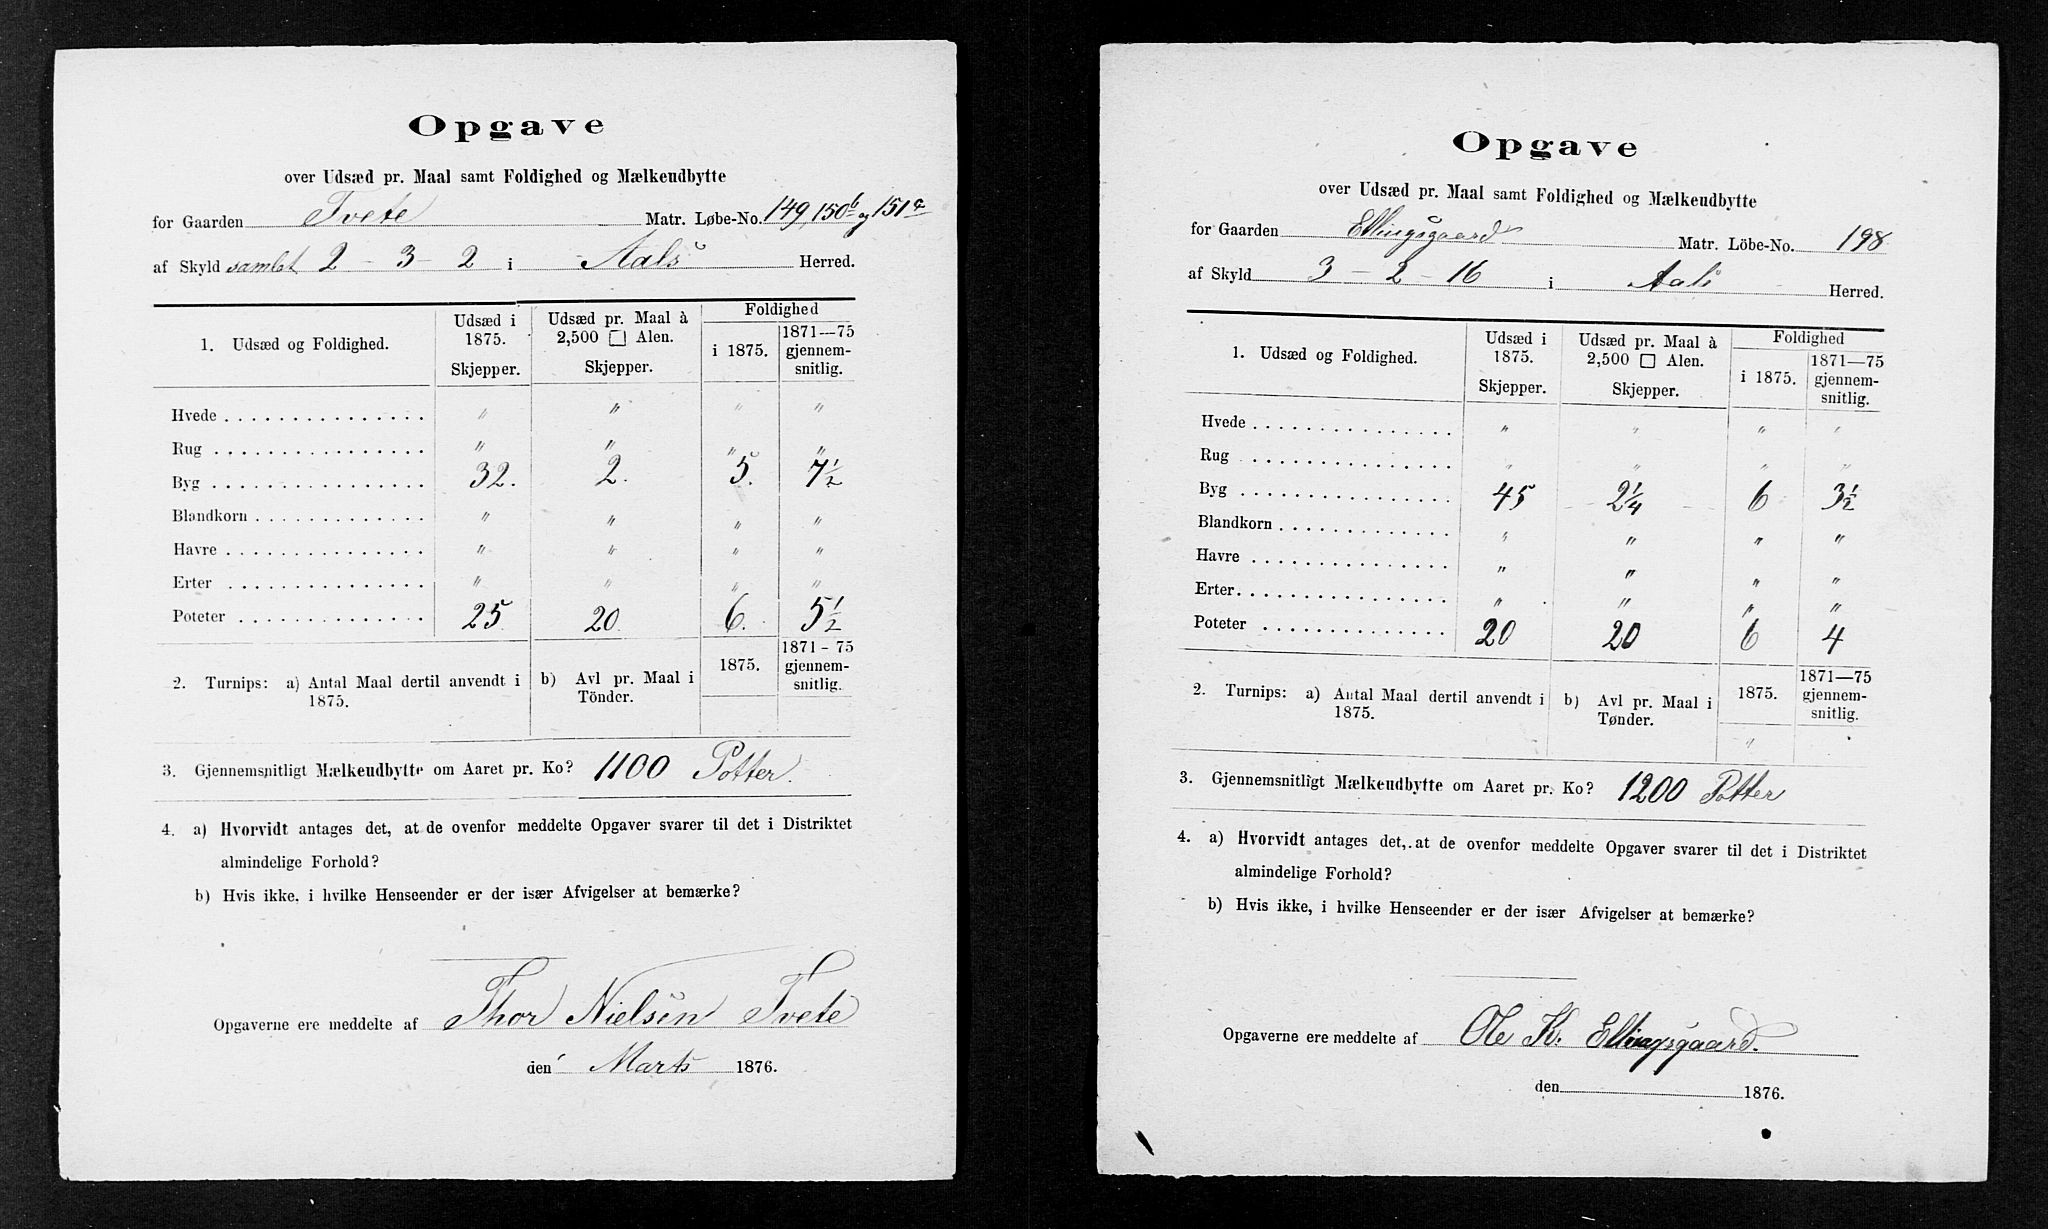 Opgave
over Udsæd pr. Maal samt Foldighed og Mælkeudbytte
for Gaarden Tvete Matr. Løbe-No. 149, 150b og 151a
af Skyld samlet 2 - 3 - 2 i Aals Herred.
1. Udsæd og Foldighed. Udsæd i 1875. Skjepper. Udsæd pr. Maal à 2,500 □ Alen. Skjepper. Foldighed i 1875. 1871—75 gjennemsnitlig.
Hvede " " " "
Rug " " " "
Byg 32. 2. 5. 7½
Blandkorn " " " "
Havre " " " "
Erter " " " "
Poteter 25 20 6. 5½
2. Turnips: a) Antal Maal dertil anvendt i 1875. b) Avl pr. Maal i Tönder. 1875. 1871 - 75 gjennemsnitlig.
3. Gjennemsnitligt Mælkeudbytte om Aaret pr. Ko? 1100 Potter.
4. a) Hvorvidt antages det, at de ovenfor meddelte Opgaver svarer til det i Distriktet
almindelige Forhold?
b) Hvis ikke, i hvilke Henseender er der især Afvigelser at bemærke?
Opgaverne ere meddelte af Thor Nielsen Tvete
den Marts 1876.
Opgave
over Udsæd pr. Maal samt Foldighed og Mælkeudbytte
for Gaarden Ellingsgaard Matr. Löbe-No. 198
af Skyld 3 - 2 - 16 i Aals Herred.
1. Udsæd og Foldighed. Udsæd i 1875. Skjepper. Udsæd pr. Maal à 2,500 □ Alen. Skjepper. Foldighed i 1875. 1871—75 gjennemsnitlig.
Hvede " " " "
Rug " " " "
Byg 45 2¼ 6 3½
Blandkorn " " " "
Havre " " " "
Erter " " " "
Poteter 20 20 6 4
2. Turnips: a) Antal Maal dertil anvendt i 1875. b) Avl pr. Maal i Tønder. 1875. 1871—75 gjennemsnitlig.
"
3. Gjennemsnitligt Mælkeudbytte om Aaret pr. Ko? 1200 Potter
4. a) Hvorvidt antages det, at de ovenfor meddelte Opgaver svarer til det i Distriktet
almindelige Forhold?
b) Hvis ikke, i hvilke Henseender er der især Afvigelser at bemærke?
Opgaverne ere meddelte af Ole K. Ellingsgaard.
den 1876.